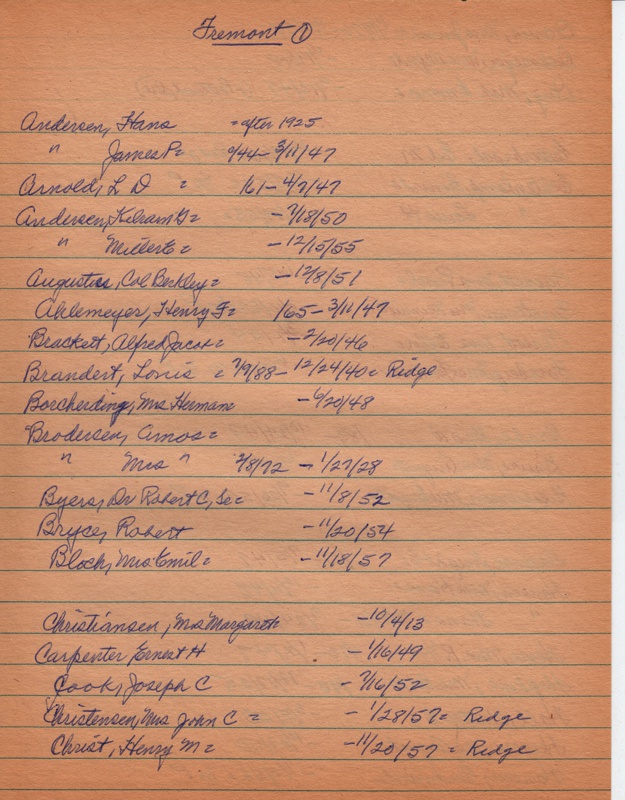 Fremont ①
Andersen, Hans = after 1925
" James P= 9/44 - 3/11/47
Arnold, L D = 161 - 4/7/47
Andersen, G= - 7/18/50
" = - 12/15/55
Augustus, Col Berkley = - 12/8/51
Ahlemeyer, Henry F= 1/65 - 3/11/47
Brackett, Alfred Jacob = - 2/20/46
Brandert, Louis = 7/9/88 - 12/24/40 = Ridge
Borcherding, Mrs Herman= - 6/20/48
Brodersen, Amos =
" Mrs " 3/8/72 - 1/27/28
Byers, Dr Robert C, Sr= - 11/8/52
Bryce, Robert - 11/20/54
Bloch, Mrs Emil = - 11/18/57
Christiansen, Mrs Margareth - 10/4/13
Carpenter Ernest H - 1/16/49
Cook, Joseph C - 7/16/52
Christensen, Mrs John C = - 1/28/57 = Ridge
Christ, Henry M = - 11/20/57 = Ridge